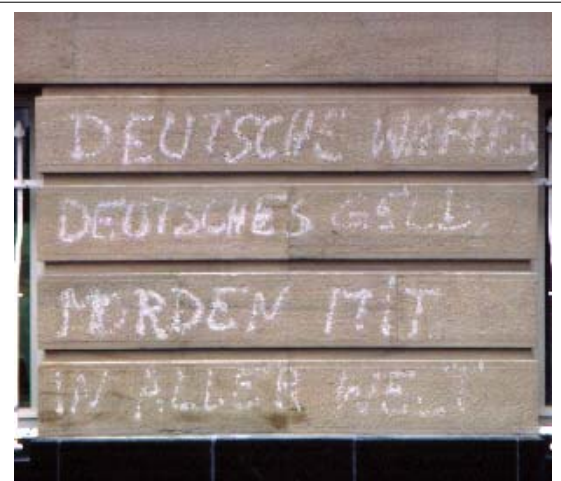 DEUTSCHE WAFFEN
DEUTSCHES GELD
MORDEN MIT
IN ALLER WELT